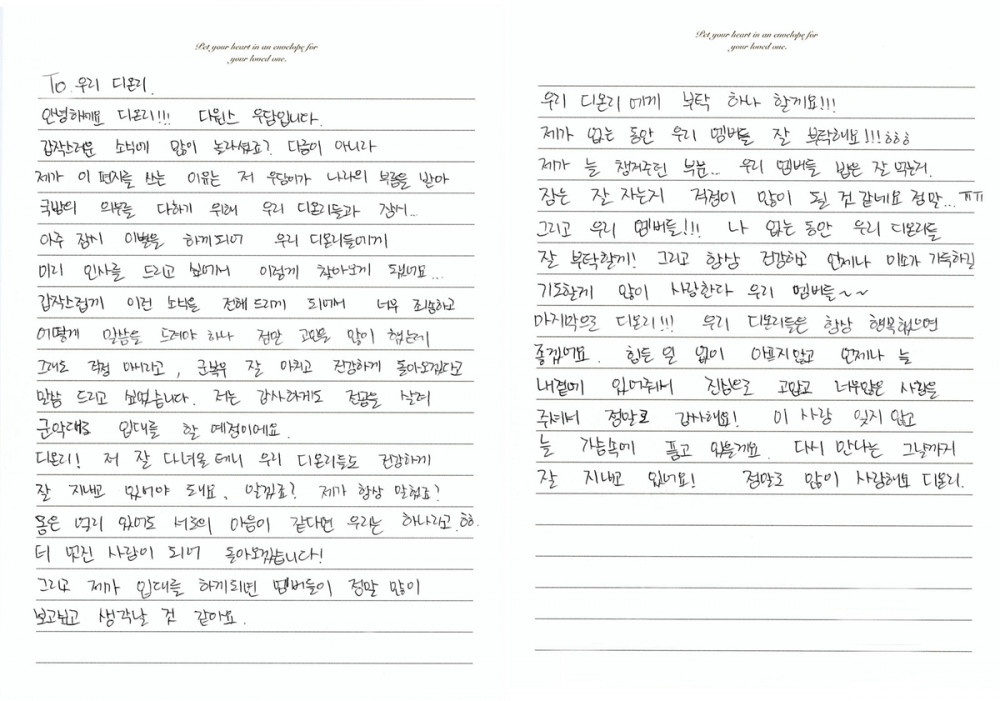 Put your heart in an envelope for
your loved one.
To. 우리 디온리.
안녕하세요 디온리!!! 다윈스 우담입니다.
갑작스러운 소식에 많이 놀라셨죠? 다름이 아니라
제가 이 편지를 쓰는 이유는 저 우담이가 나라의 부름을 받아
국방의 의무를 다하기 위해 우리 디온리들과 잠시...
아주 잠시 이별을 하게되어 우리 디온리들에게
미리 인사를 드리고 싶어서 이렇게 찾아오게 됐어요...
갑작스럽게 이런 소식을 전해 드리게 되어서 너무 죄송하고
어떻게 말씀을 드려야 하나 정말 고민을 많이 했는데
그래도 걱정 마시라고, 군복무 잘 마치고 건강하게 돌아오겠다고
말씀 드리고 싶었습니다. 저는 감사하게도 전공을 살려
군악대로 입대를 할 예정이에요.
디온리! 저 잘 다녀올 테니 우리 디온리들도 건강하게
잘 지내고 있어야 돼요, 알겠죠? 제가 항상 말했죠?
몸은 멀리 있어도 서로의 마음이 같다면 우리는 하나라고.ㅎㅎ.
더 멋진 사람이 되어 돌아오겠습니다!
그리고 제가 입대를 하게되면 멤버들이 정말 많이
보고싶고 생각날 것 같아요.
Put your heart in an envelope for
your loved one.
우리 디온리에게 부탁 하나 할게요!!!
제가 없는 동안 우리 멤버들 잘 부탁해요!!!ㅎㅎㅎ
제가 늘 챙겨주던 부분... 우리 멤버들 밥은 잘 먹는지.
잠은 잘 자는지 걱정이 많이 될 것 같네요 정말...ㅠㅠ
그리고 우리 멤버들!!! 나 없는 동안 우리 디온리들
잘 부탁할게! 그리고 항상 건강하고 언제나 미소가 가득하길
기도할게 많이 사랑한다 우리 멤버들~~
마지막으로 디온리!!! 우리 디온리들은 항상 행복했으면
좋겠어요. 힘든 일 없이 아프지않고 언제나 늘
내곁에 있어줘서 진심으로 고맙고 너무많은 사랑을
주셔서 정말로 감사해요! 이 사랑 잊지 않고
늘 가슴속에 품고 있을게요. 다시 만나는 그날까지
잘 지내고 있어요! 정말로 많이 사랑해요 디온리.